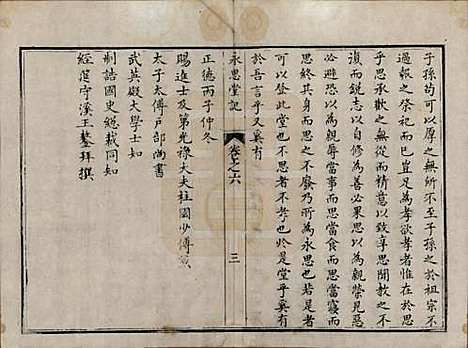 子孫均可以原之無所不至子孫之於祖宗不
過報之祭祀而已豈足為孝欲孝者惟在於思
乎思承歡之無從而精意以致享思聞教之不
復而銳志以自修為善必果思以為親榮見惡
必避恐以為親辱當事而思當食而思當寢而
思終其身而思之不廢乃所為永思也思之者
可以登此堂也不思者不孝也於是堂乎奚有
於吾言乎又奚有
永思堂記
卷之六
三
正德丙子仲冬
賜進士及第光祿大夫柱國少傅兼
太子太傅戶部尚書
武英殿大學士知
制誥國史總裁同知
經筵守溪王鏊拜撰